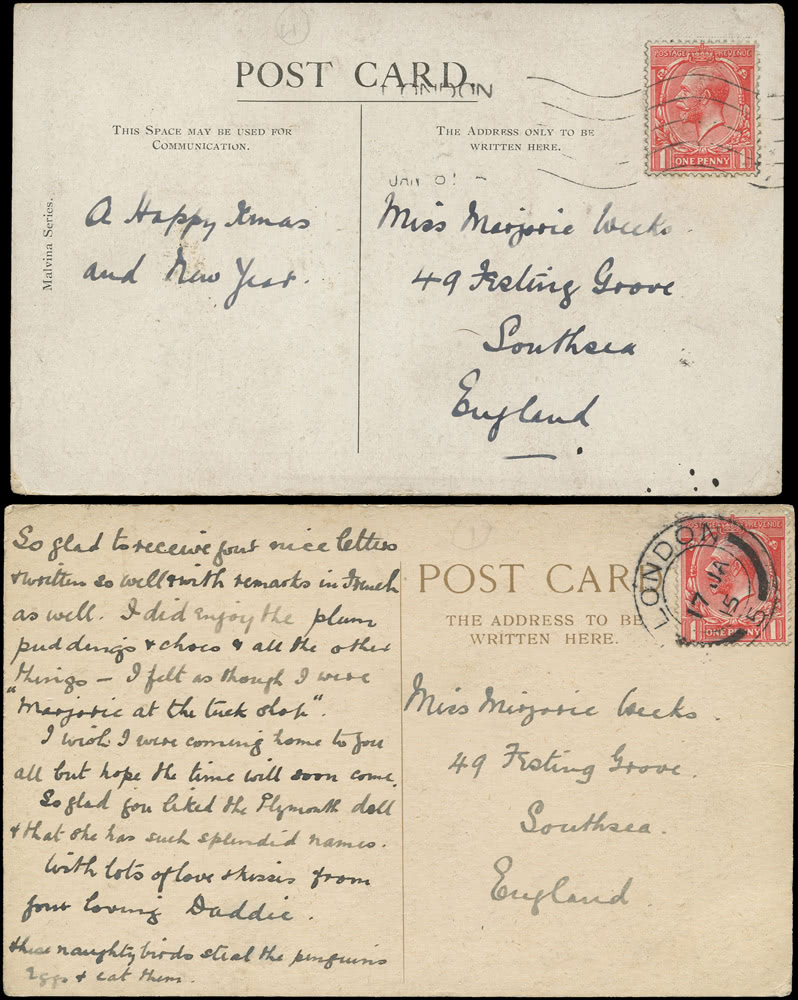 POST CARD
LONDON
POSTAGE REVENUE
1 ONE PENNY 1
THIS SPACE MAY BE USED FOR
COMMUNICATION.
THE ADDRESS ONLY TO BE
WRITTEN HERE.
JAN 01
Malvina Series.
A Happy Xmas
and New Year.
Miss Marjorie Weeks.
49 Festing Grove
Southsea
England
So glad to receive your nice letters
& written so well & with remarks in French
as well. I did enjoy the plum
puddings & chocs & all the other
things — I felt as though I were
"Marjorie at the tuck shop".
I wish I were coming home to you
all but hope the time will soon come.
So glad you liked the Plymouth doll
& that she has such splendid names.
With lots of love & kisses from
your loving Daddie.
these naughty birds steal the penguins
eggs & eat them.
POST CARD
THE ADDRESS TO BE
WRITTEN HERE.
LONDON
17 JA
POSTAGE REVENUE
1 ONE PENNY 1
Miss Marjorie Weeks.
49 Festing Grove.
Southsea.
England.